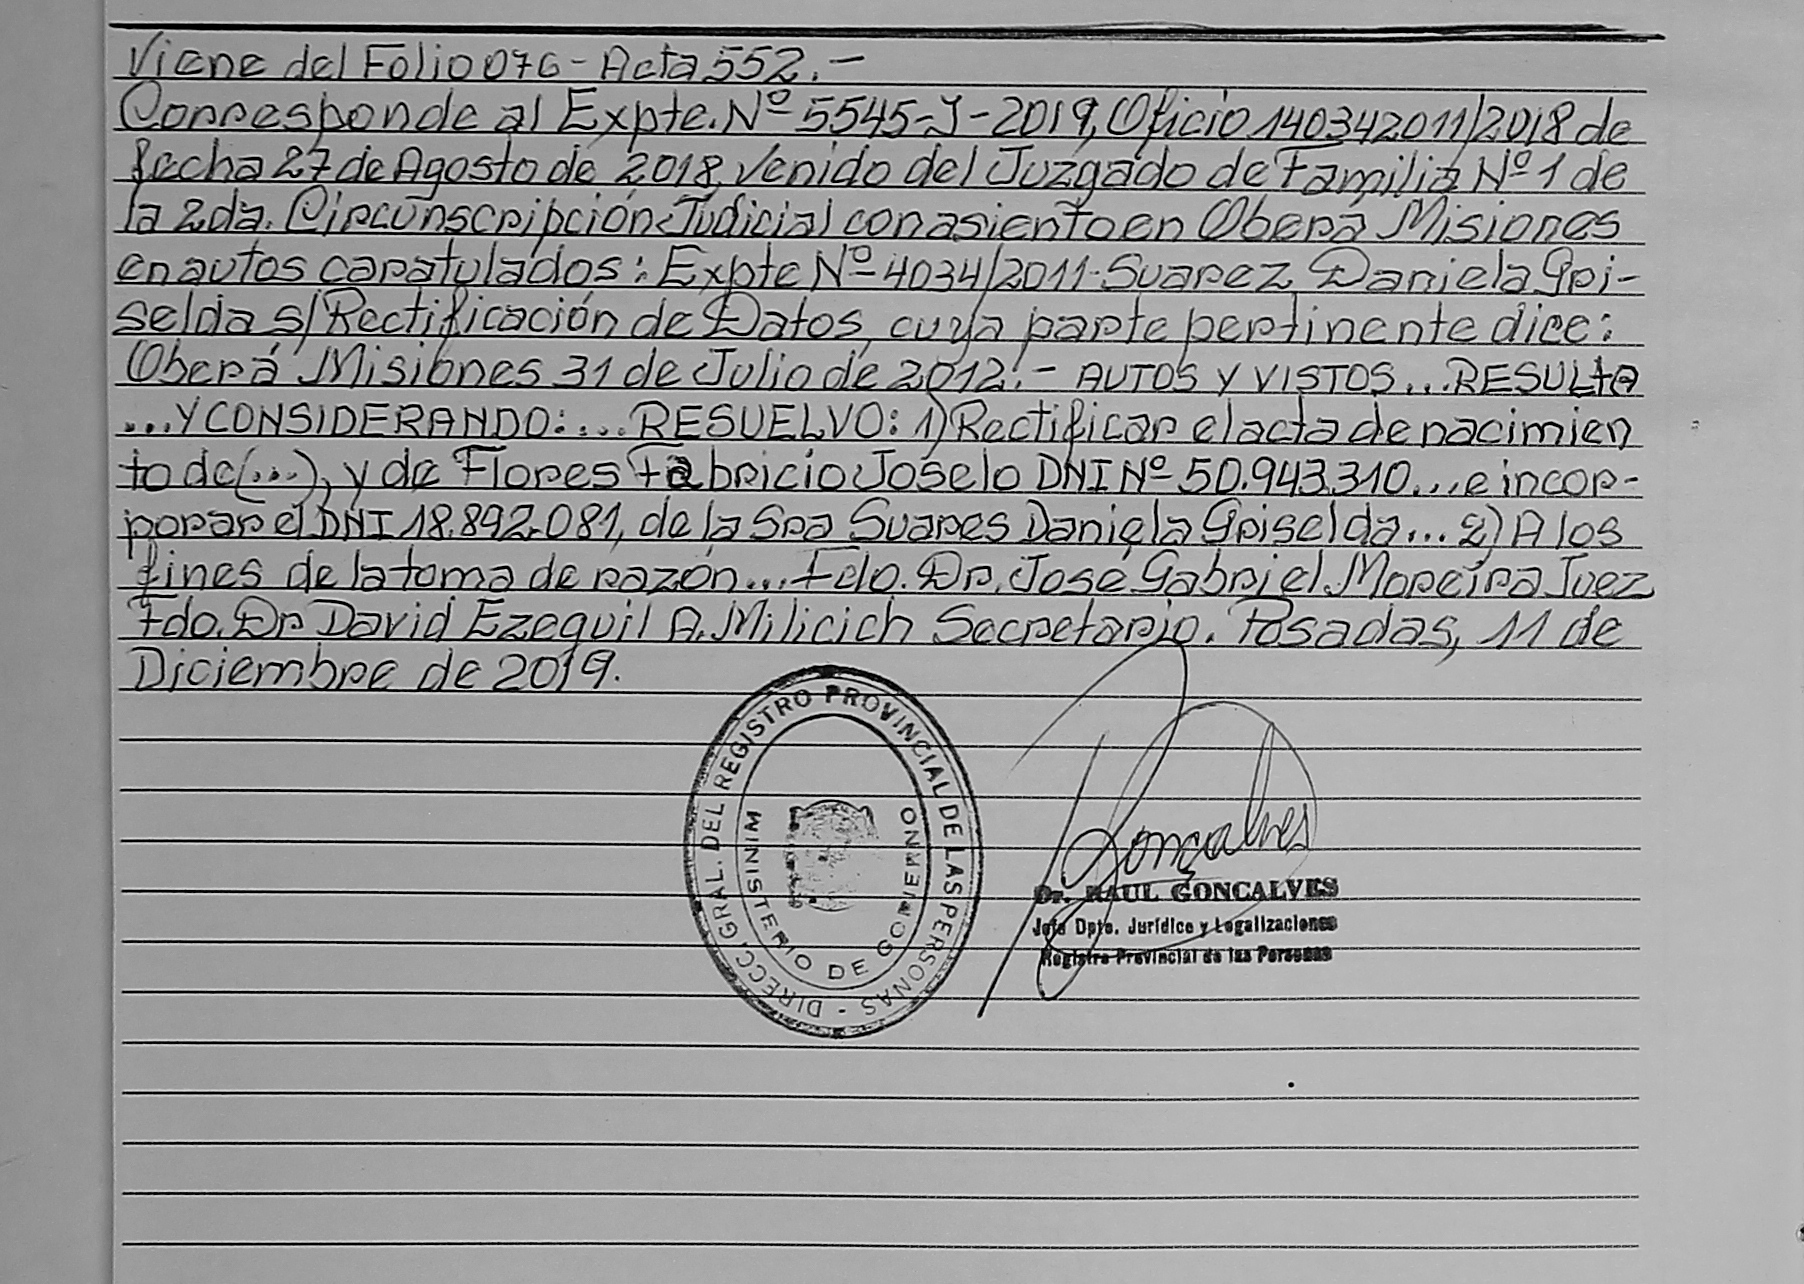 Viene del Folio 076 - Acta 552.-
Corresponde al Expte. Nº 5545-J-2019, Oficio 140342011/2018 de
fecha 27 de Agosto de 2018, venido del Juzgado de Familia Nº 1 de
la 2da. Circunscripción Judicial con asiento en Oberá Misiones
en autos caratulados: Expte Nº 4034/2011-Suarez Daniela Gri-
selda s/Rectificación de Datos, cuya parte pertinente dice:
Oberá Misiones 31 de Julio de 2012.- AUTOS Y VISTOS...RESULTA
...Y CONSIDERANDO:...RESUELVO: 1) Rectificar el acta de nacimien
to de (...), y de Flores Fabricio Joselo DNI Nº 50.943.310...e incor-
porar el DNI 18.892.081, de la Sra Suares Daniela Griselda... 2) A los
fines de la toma de razón... Fdo. Dr. José Gabriel Moreira Juez
Fdo. Dr David Ezequil A. Milicich Secretario. Posadas, 11 de
Diciembre de 2019.
DIRECC. GRAL. DEL REGISTRO PROVINCIAL DE LAS PERSONAS -
MINISTERIO DE GOBIERNO
Goncalves
Dr. RAUL GONCALVES
Jefe Dpto. Jurídico y Legalizaciones
Registro Provincial de las Personas